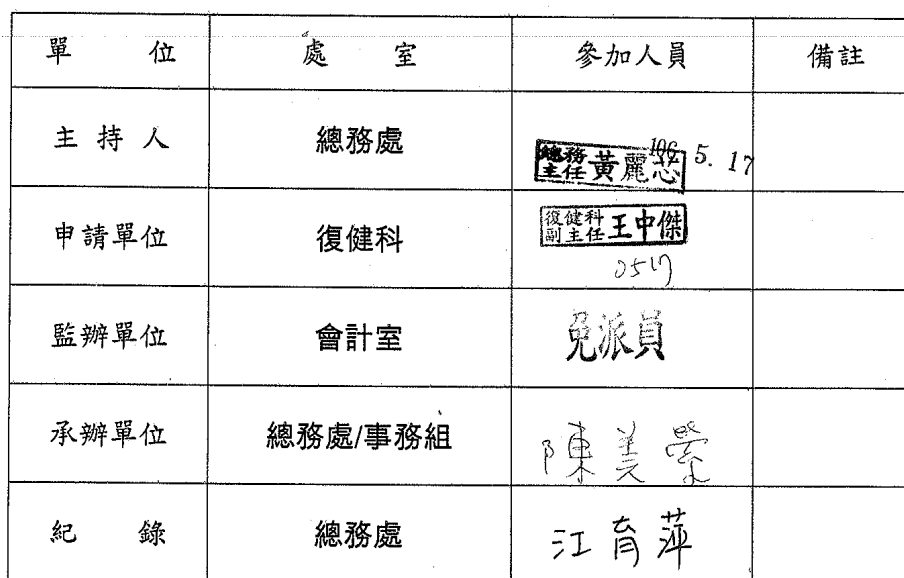 單 位 處 室 參加人員 備註
主 持 人 總務處 總務主任 黃麗 106. 5. 17
申請單位 復健科 復健科副主任 王中傑
0517
監辦單位 會計室 免派員
承辦單位 總務處/事務組 陳美
紀 錄 總務處 江育萍